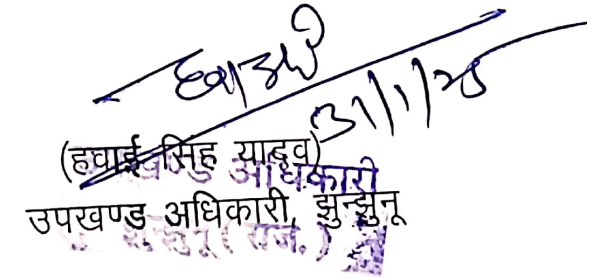 31/1/25
(हवाई सिंह यादव)
उपखण्ड अधिकारी
उपखण्ड अधिकारी, झुन्झुनू
झुन्झुनू (राज.)